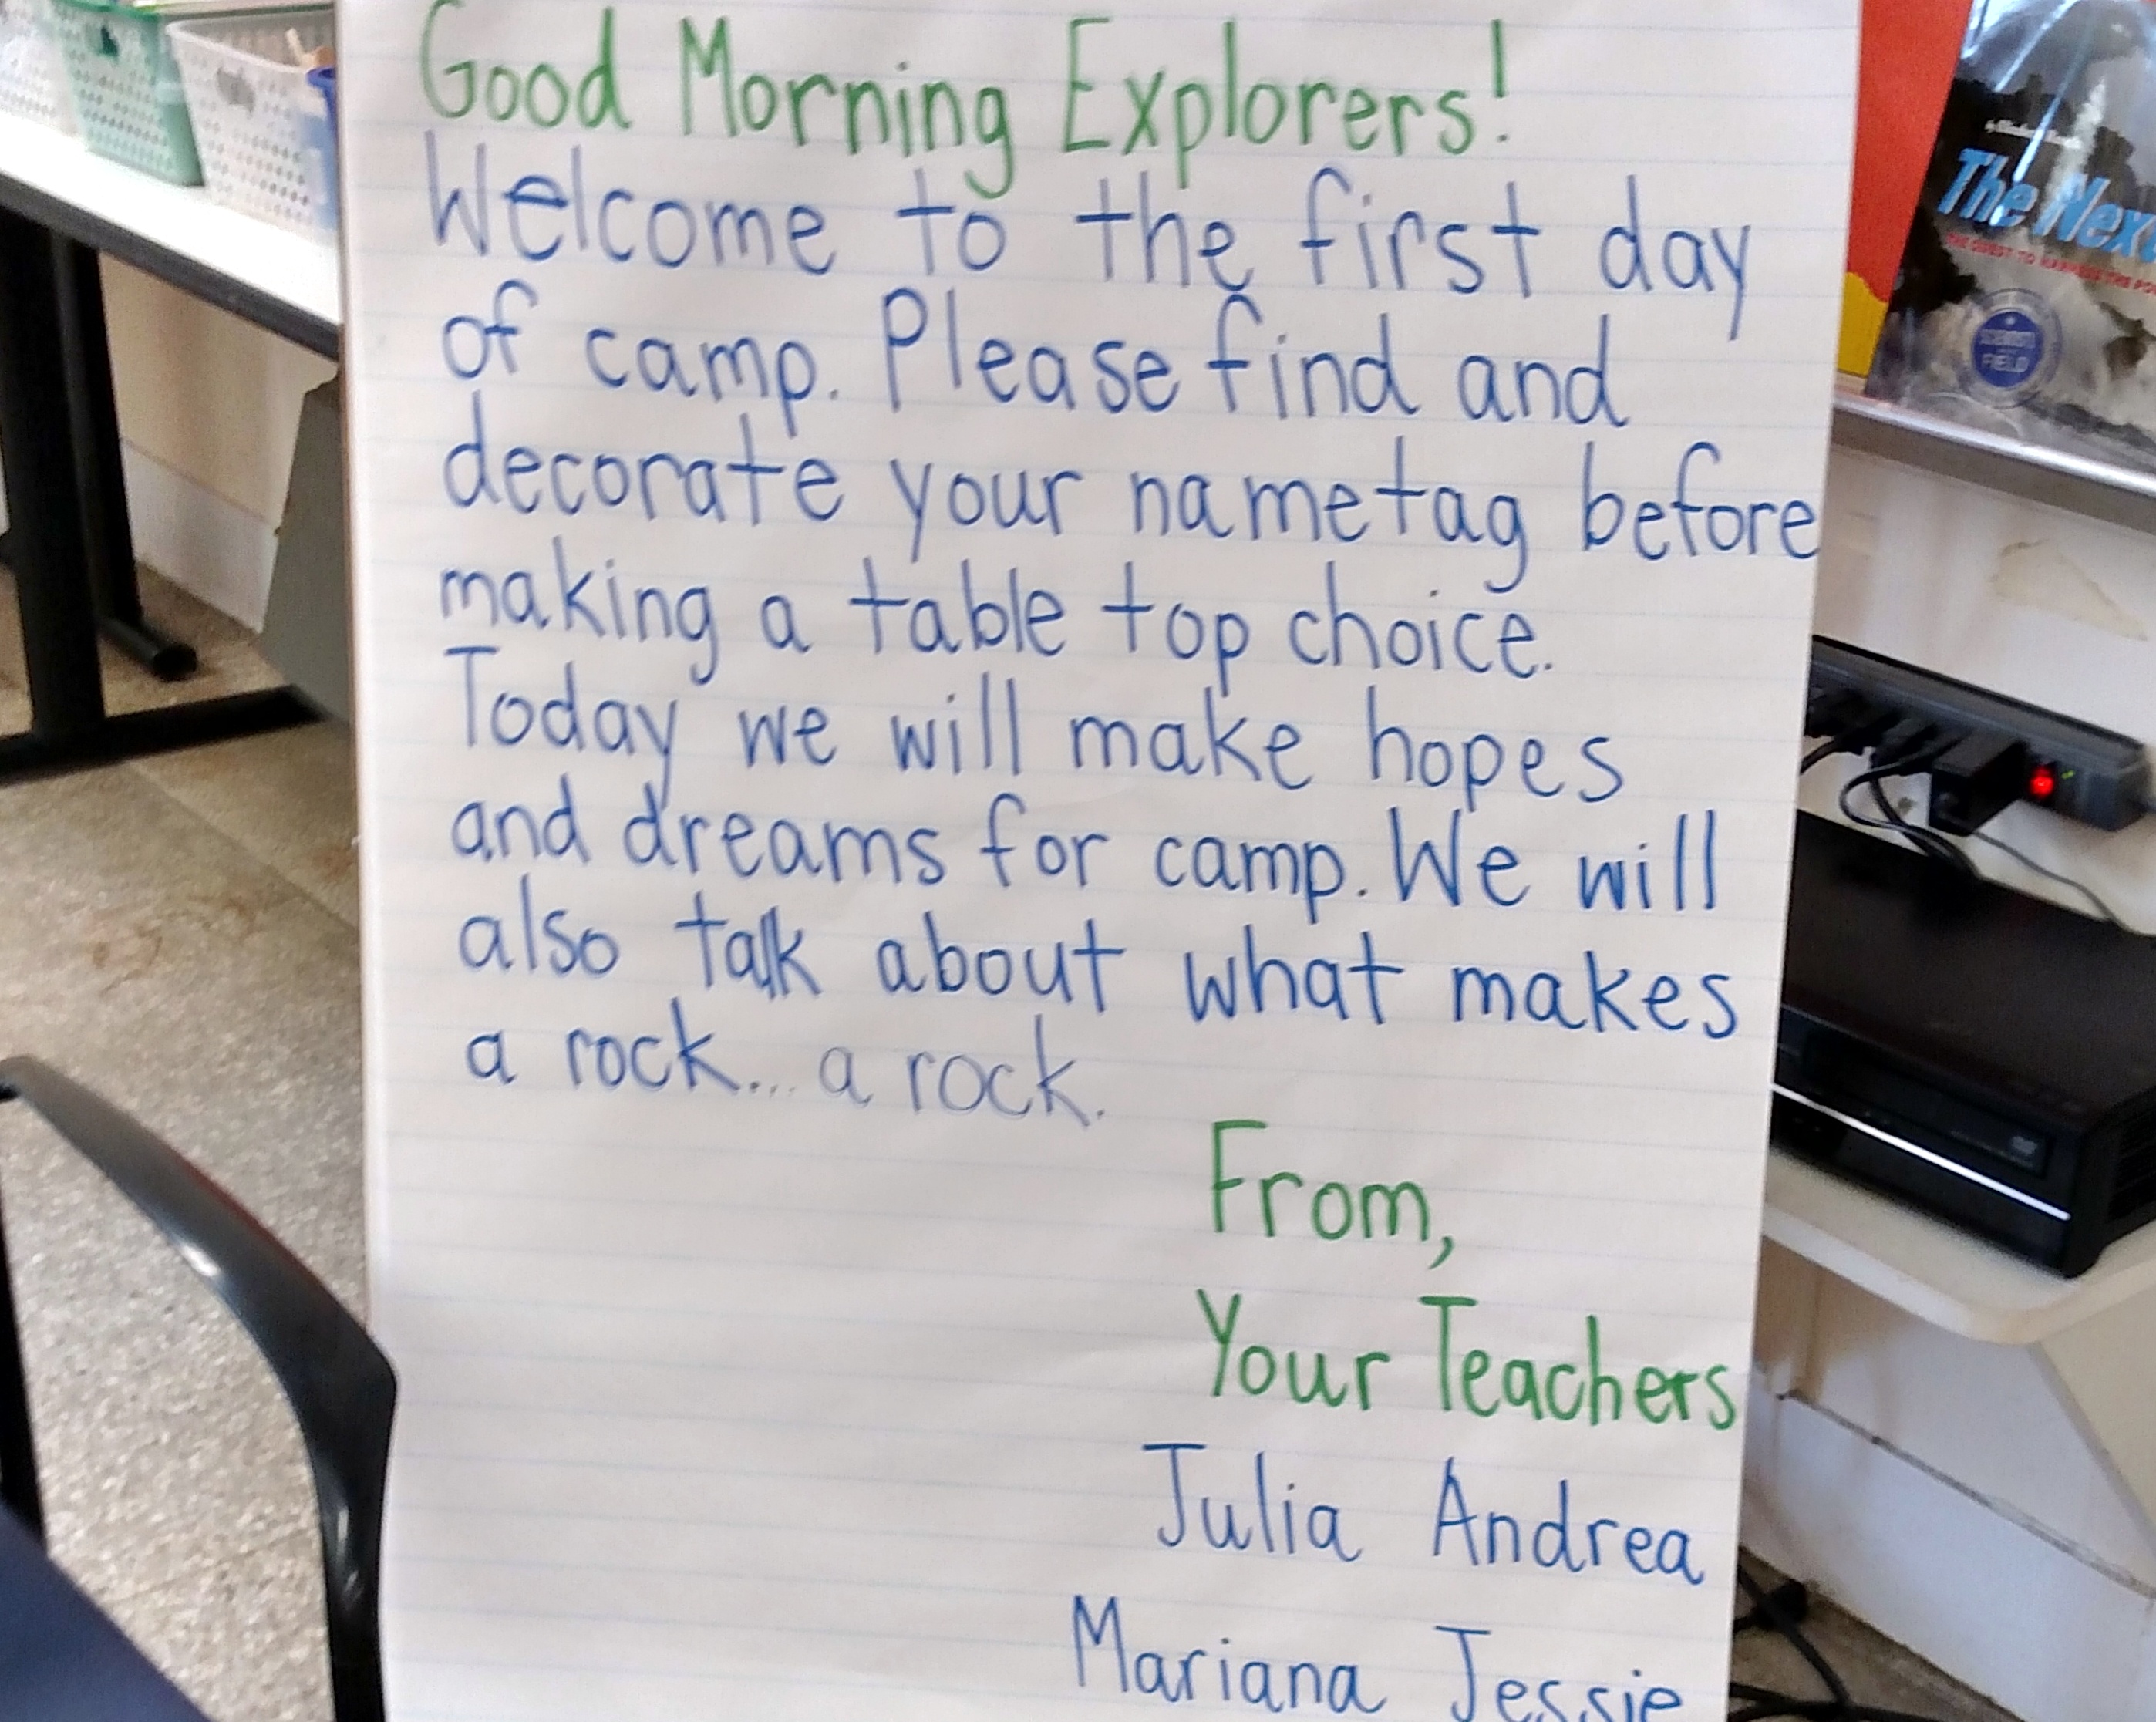 Good Morning Explorers!
Welcome to the first day
of camp. Please find and
decorate your nametag before
making a table top choice.
Today we will make hopes
and dreams for camp. We will
also talk about what makes
a rock... a rock.
From,
Your Teachers
Julia Andrea
Mariana Jessie
The Next
SCIENTISTS
FIELD